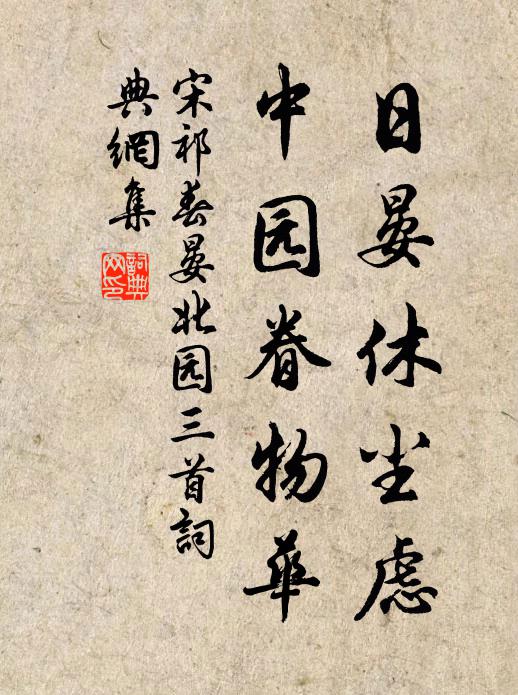 日晏休尘虑
中园眷物华
宋祁春晏北园三首詞
典網集
詞典
网印